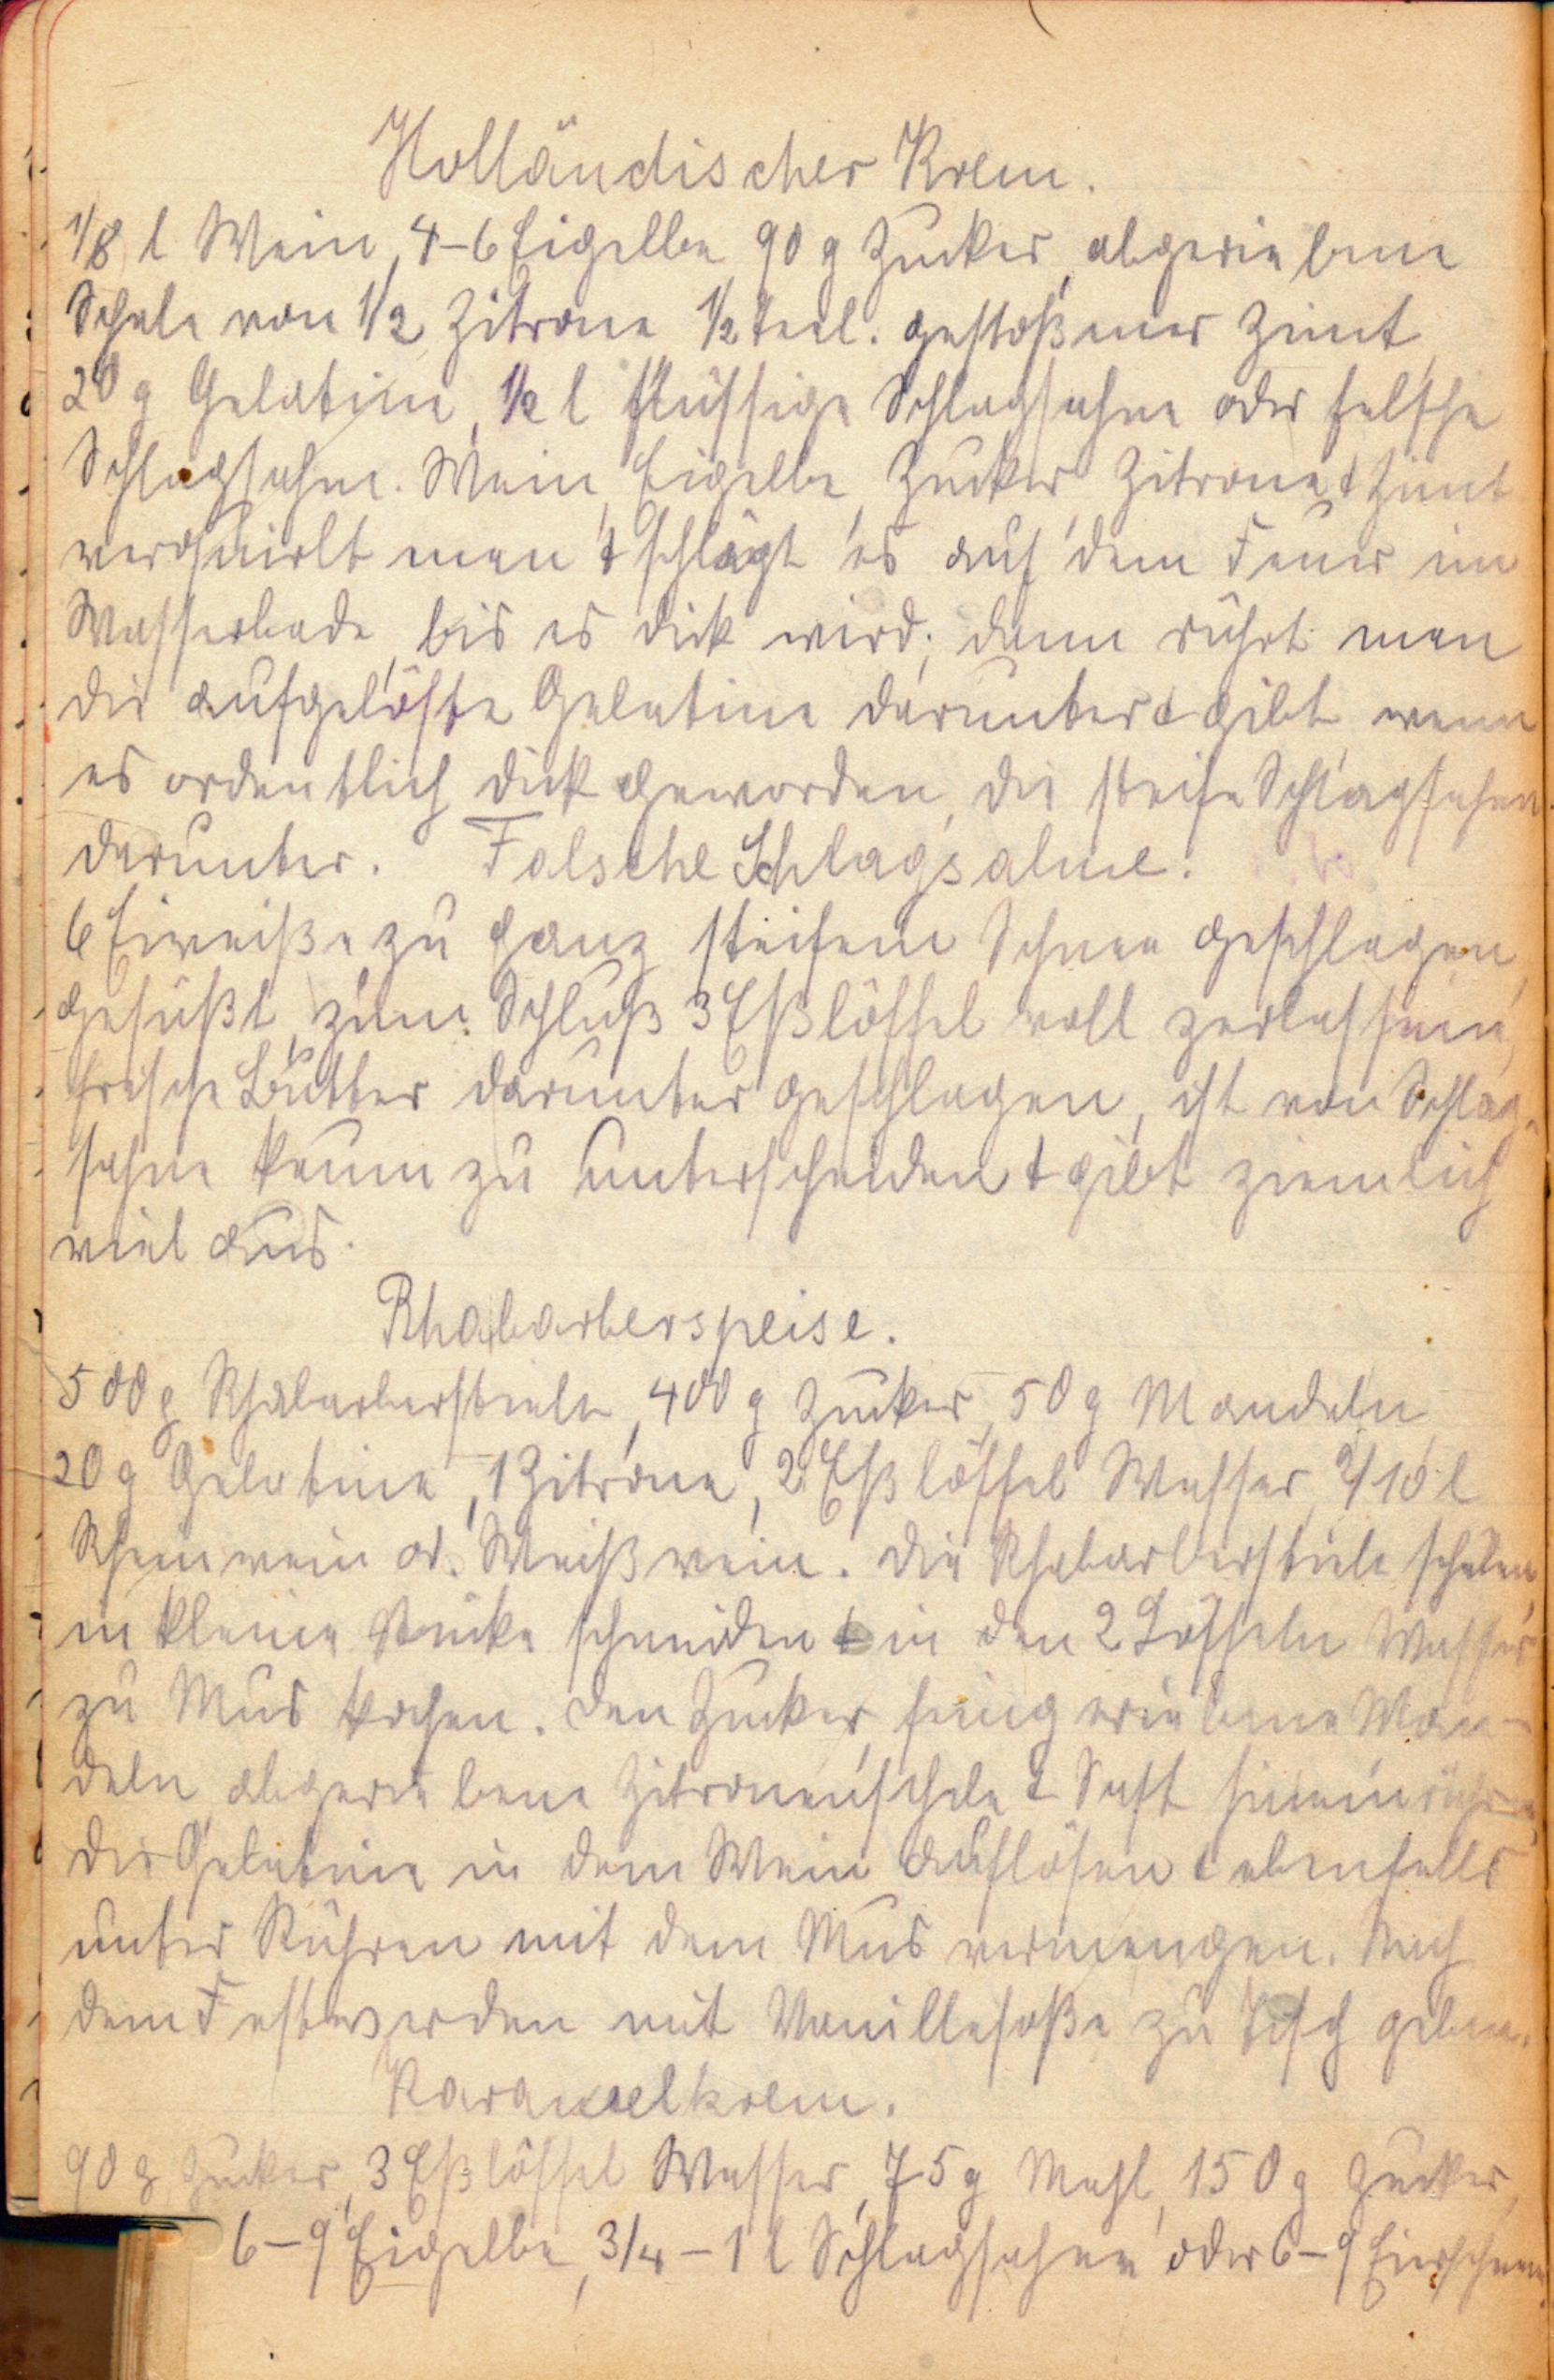 Holländischer Krem.
1/8 l Wein, 4-6 Eigelbe, 90 g Zucker, abgeriebene
Schale von 1/2 Zitrone 1/2 Teel. gestoßener Zimt,
20 g Gelatine, 1/2 l flüssige Schlagsahne oder falsche
Schlagsahne. Wein, Eigelbe, Zucker, Zitrone & Zimt
verquirlt man & schlägt es auf dem Feuer im
Wasserbade, bis es dick wird; dann rührt man
die aufgelöste Gelatine darunter & gibt wenn
es ordentlich dick geworden, die steife Schlagsahne
darunter. Falsche Schlagsahne.
6 Eiweiße zu ganz steifem Schnee geschlagen,
gesüßt, zum Schluß 3 Eßlöffel voll zerlassene,
frische Butter darunter geschlagen, ist von Schlag-
sahne kaum zu unterscheiden & gibt ziemlich
viel aus.
Rhabarberspeise.
500 g Rhabarberstiele, 400 g Zucker, 50 g Mandeln,
20 g Gelatine, 1 Zitrone, 2 Eßlöffel Wasser, 2/10 l
Rheinwein od. Weißwein. Die Rhabarberstiele schälen,
in kleine Stücke schneiden & in den 2 Löffeln Wasser
zu Mus kochen. Den Zucker, feingeriebene Man-
deln, abgeriebene Zitronenschale & Saft hineinrühren,
die Gelatine in dem Wein auflösen & ebenfalls
unter Rühren mit dem Mus vermengen. Nach
dem Festwerden mit Vanillesoße zu Tisch geben.
Karamelkrem.
90 g Zucker, 3 Eßlöffel Wasser, 75 g Mehl, 150 g Zucker,
6-9 Eigelbe, 3/4 - 1 l Schlagsahne oder 6-9 Eierschnee.